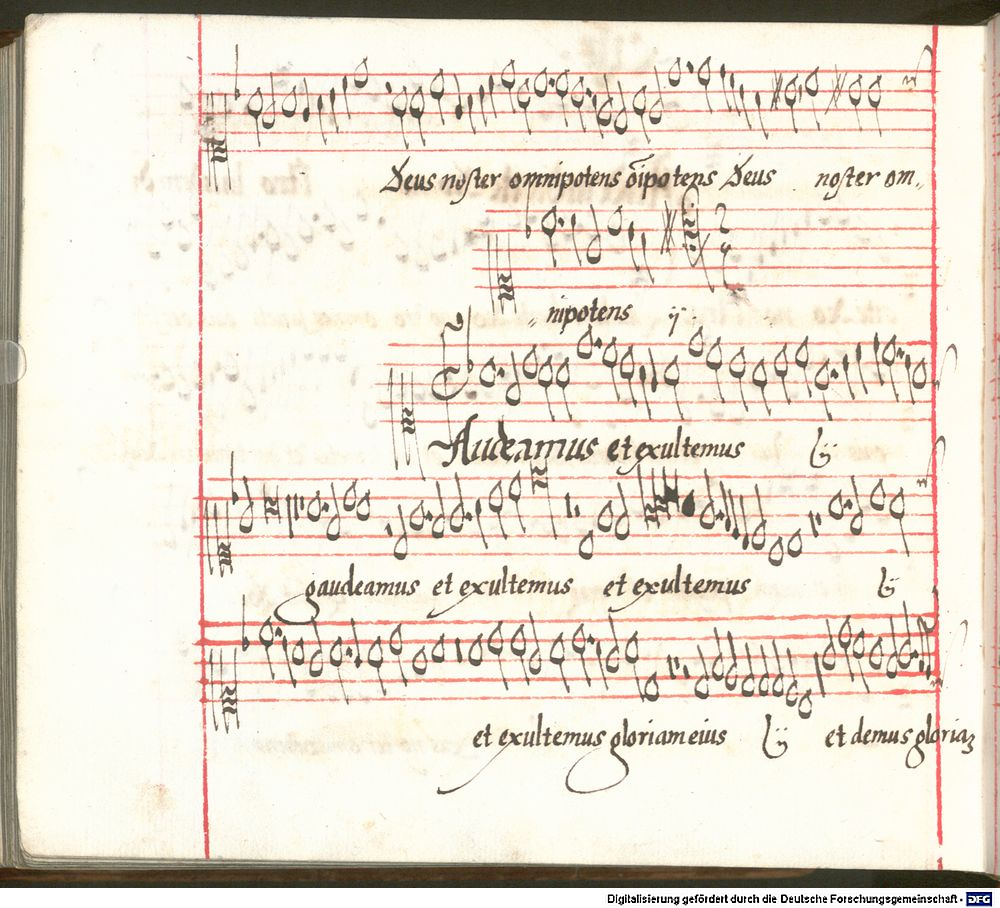 Deus noster omnipotens õipotens Deus noster om„
„ nipotens ij
Audeamus et exultemus ij
gaudeamus et exultemus et exultemus ij
et exultemus gloriam eius ij et demus gloriaʒ
Digitalisierung gefördert durch die Deutsche Forschungsgemeinschaft - DFG